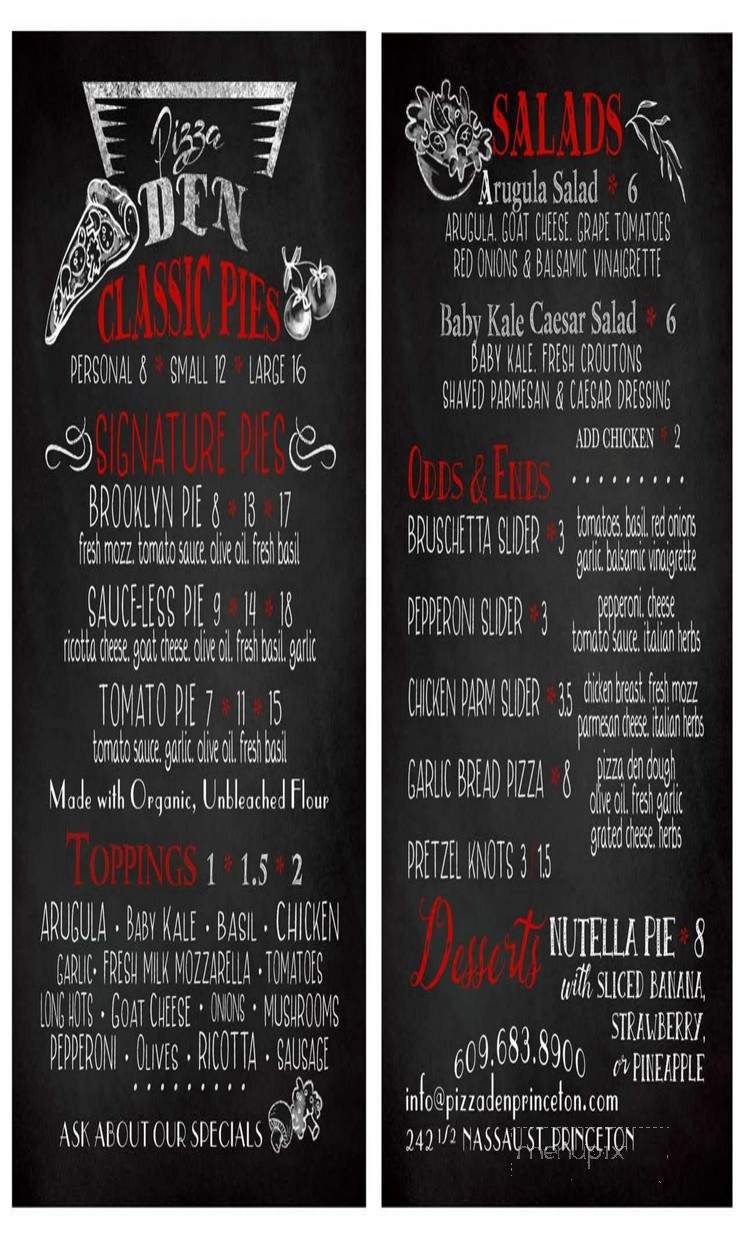 Pizza
DEN
CLASSIC PIES
PERSONAL 8 * SMALL 12 * LARGE 16
SIGNATURE PIES
BROOKLYN PIE 8 * 13 * 17
fresh mozz. tomato sauce. olive oil. fresh basil
SAUCE-LESS PIE 9 * 14 * 18
ricotta cheese. goat cheese. olive oil. fresh basil. garlic
TOMATO PIE 7 * 11 * 15
tomato sauce. garlic. olive oil. fresh basil
Made with Organic, Unbleached Flour
TOPPINGS 1 * 1.5 * 2
ARUGULA • BABY KALE • BASIL • CHICKEN
GARLIC • FRESH MILK MOZZARELLA • TOMATOES
LONG HOTS • GOAT CHEESE • ONIONS • MUSHROOMS
PEPPERONI • OLIVES • RICOTTA • SAUSAGE
ASK ABOUT OUR SPECIALS
SALADS
Arugula Salad * 6
ARUGULA. GOAT CHEESE. GRAPE TOMATOES
RED ONIONS & BALSAMIC VINAIGRETTE
Baby Kale Caesar Salad * 6
BABY KALE. FRESH CROUTONS
SHAVED PARMESAN & CAESAR DRESSING
ADD CHICKEN * 2
ODDS & ENDS
BRUSCHETTA SLIDER * 3
tomatoes. basil. red onions
garlic. balsamic vinaigrette
PEPPERONI SLIDER * 3
pepperoni. cheese
tomato sauce. italian herbs
CHICKEN PARM SLIDER * 3.5
chicken breast. fresh mozz
parmesan cheese. italian herbs
GARLIC BREAD PIZZA * 8
pizza den dough
olive oil. fresh garlic
grated cheese. herbs
PRETZEL KNOTS 3 * 1.5
Desserts
NUTELLA PIE * 8
with SLICED BANANA,
STRAWBERRY,
or PINEAPPLE
609.683.8900
info@pizzadenprinceton.com
242 1/2 NASSAU ST. PRINCETON
menupix